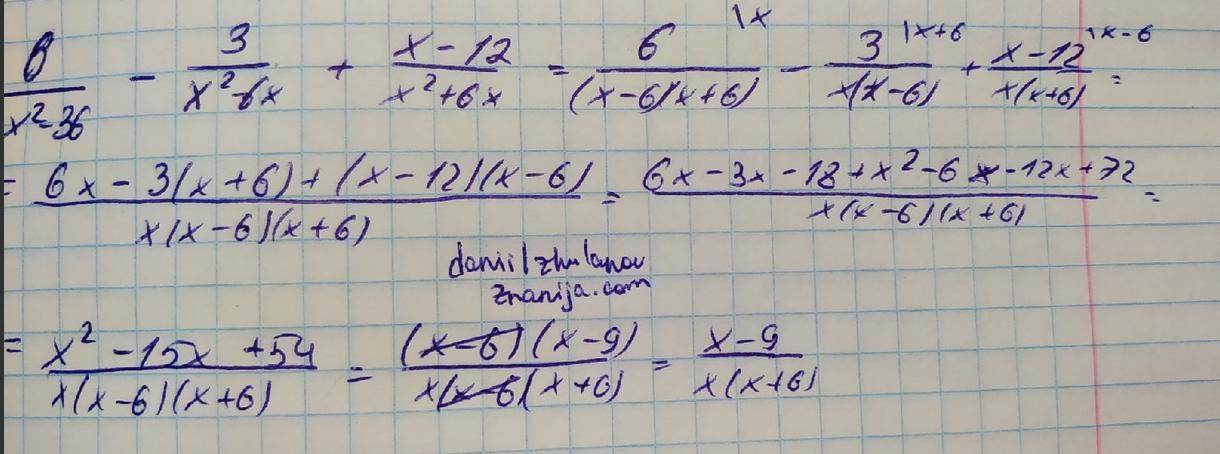 6/(x²-36) - 3/(x²-6x) + (x-12)/(x²+6x) = 6\x/((x-6)(x+6)) - 3\x+6/(x(x-6)) + x-12\x-6/(x(x+6)) =
= (6x-3(x+6)+(x-12)(x-6))/(x(x-6)(x+6)) = (6x-3x-18+x²-6x-12x+72)/(x(x-6)(x+6)) =
daniilzhulanov
znanija.com
= (x²-15x+54)/(x(x-6)(x+6)) = ((x-6)(x-9))/(x(x-6)(x+6)) = (x-9)/(x(x+6))